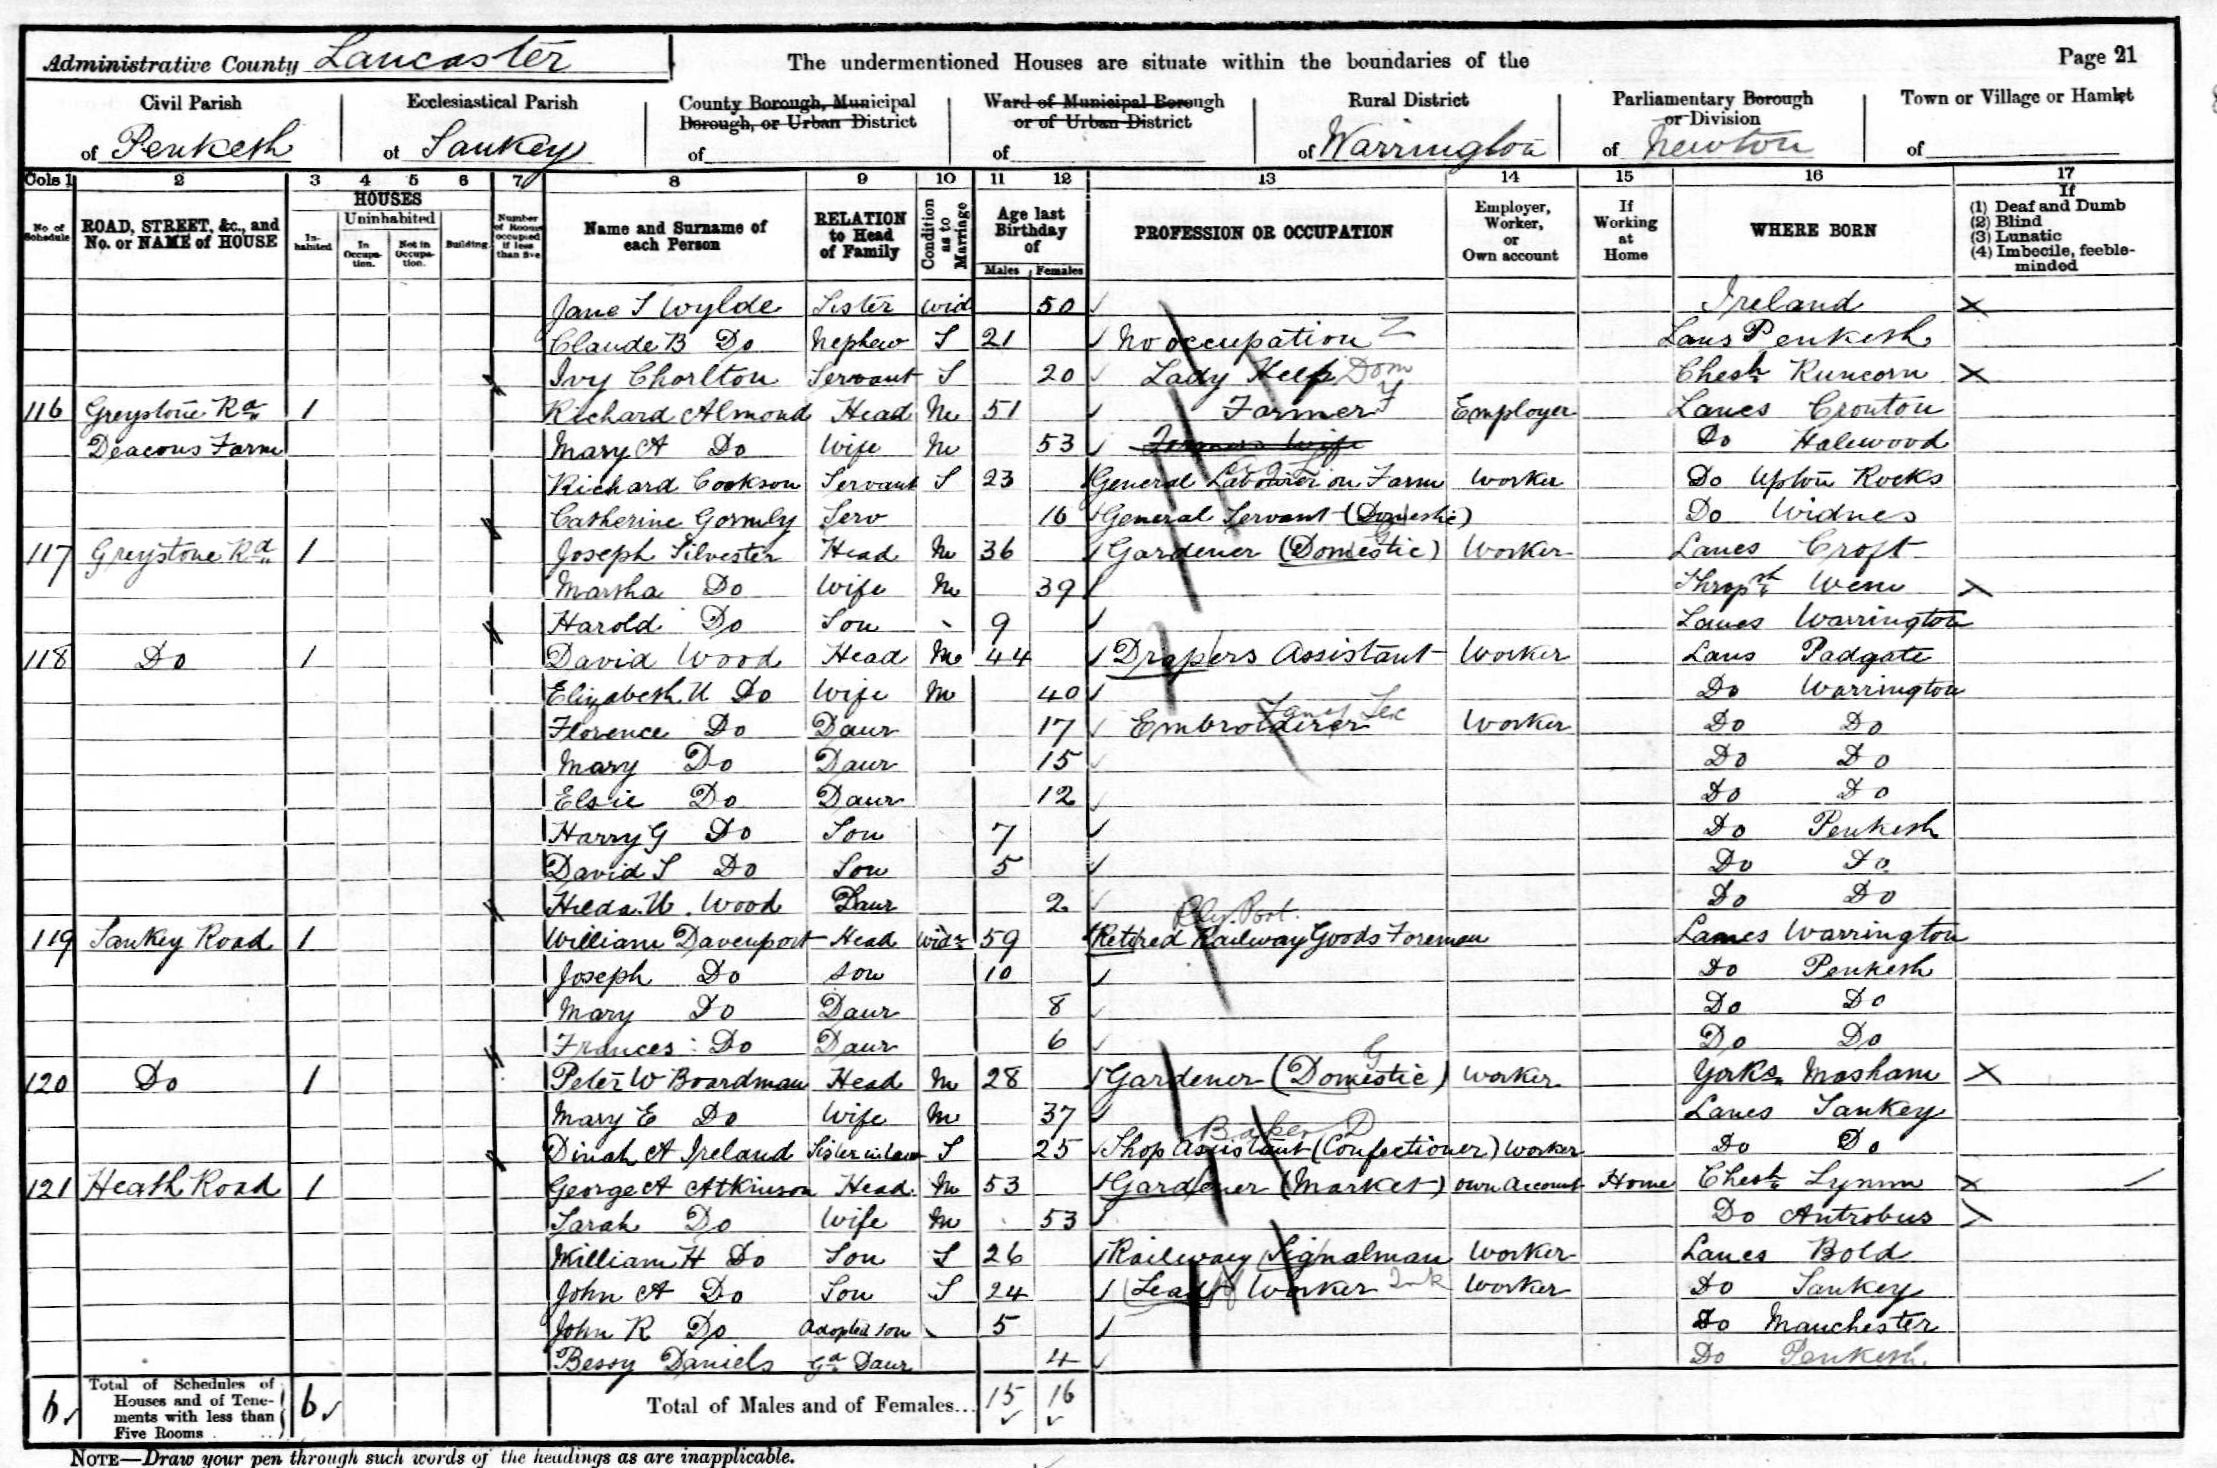 Administrative County Lancaster The undermentioned Houses are situate within the boundaries of the Page 21
Civil Parish Ecclesiastical Parish County Borough, Municipal Borough, or Urban District Ward of Municipal Borough or of Urban District Rural District Parliamentary Borough or Division Town or Village or Hamlet
of Penketh of Sankey of of of Warrington of Newton of
Cols 1 2 3 4 5 6 7 8 9 10 11 12 13 14 15 16 17
No of Schedule ROAD, STREET, &c., and No. or NAME of HOUSE HOUSES Inhabited Uninhabited In Occupation. Not in Occupation. Building Number of Rooms occupied if less than five Name and Surname of each Person RELATION to Head of Family Condition as to Marriage Age last Birthday of Males Females PROFESSION OR OCCUPATION Employer, Worker, or Own account If Working at Home WHERE BORN If (1) Deaf and Dumb (2) Blind (3) Lunatic (4) Imbecile, feeble-minded
Jane S Wylde Sister Wid 50 Ireland X
Claude B Do Nephew S 21 No occupation Lancs Penketh
Ivy Chorlton Servant S 20 Lady Help Dom Chesh Runcorn X
116 Greystone Rd 1 Richard Almond Head M 51 Farmer F Employer Lancs Cronton
Deacons Farm Mary A Do Wife M 53 Farmers Wife Do Halewood
Richard Cookson Servant S 23 General Labourer on Farm Worker Do Upton Rocks
Catherine Gormly Serv 16 General Servant (Domestic) Do Widnes
117 Greystone Rd 1 Joseph Silvester Head M 36 Gardener (Domestic) G Worker Lancs Croft
Martha Do Wife M 39 Shropsh Wem X
Harold Do Son 9 Lancs Warrington
118 Do 1 David Wood Head M 44 Drapers Assistant Worker Lancs Padgate
Elizabeth U Do Wife M 40 Do Warrington
Florence Do Daur 17 Embroiderer Worker Do Do
Mary Do Daur 15 Do Do
Elsie Do Daur 12 Do Do
Harry G Do Son 7 Do Penketh
David S Do Son 5 Do Do
Hilda U. Wood Daur 2 Do Do
Rly. Port.
119 Sankey Road 1 William Davenport Head Widr 59 Retired Railway Goods Foreman Lancs Warrington
Joseph Do Son 10 Do Penketh
Mary Do Daur 8 Do Do
Frances Do Daur 6 Do Do
120 Do 1 Peter W Boardman Head M 28 Gardener (Domestic) G Worker Yorks Masham X
Mary E Do Wife M 37 Lancs Sankey
Baker D
Dinah A Ireland Sister in law S 25 Shop Assistant (Confectioner) Worker Do Do
121 Heath Road 1 George A Atkinson Head M 53 Gardener (Market) Own Account Home Chesh Lymm X
Sarah Do Wife M 53 Do Antrobus X
William H Do Son S 26 Railway Signalman Worker Lancs Bold
John A Do Son S 24 Worker Worker Do Sankey
John R Do Adopted Son 5 Do Manchester
Bessy Daniels Gd Daur 4 Do Penketh
6 Total of Schedules of Houses and of Tenements with less than Five Rooms 6 Total of Males and of Females... 15 16
NOTE—Draw your pen through such words of the headings as are inapplicable.